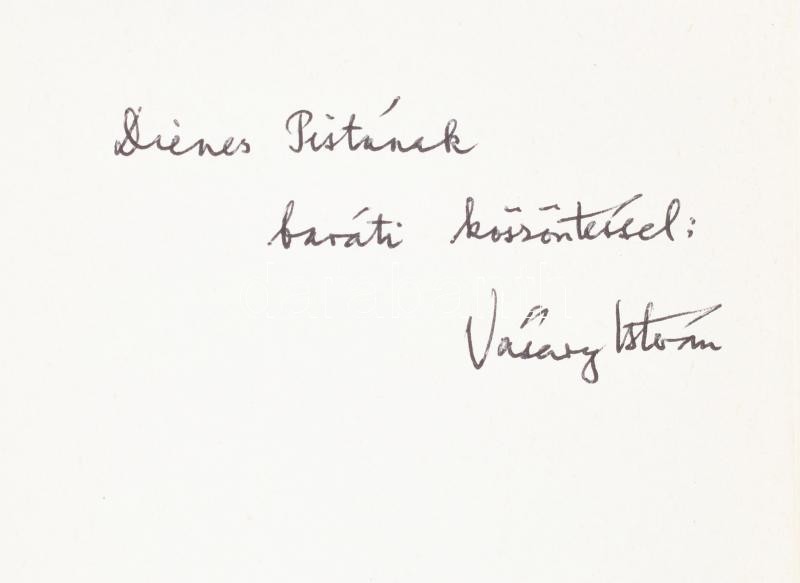 Dienes Pistának
baráti köszöntéssel:
Vásáry István